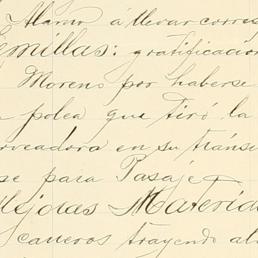 Alamo á llevar corres
emillas: gratificación
Moreno por haberse
polea que tiró la
oveadora en su tránsi
se para Pasaje
ejoras Materia
carreros trayendo al